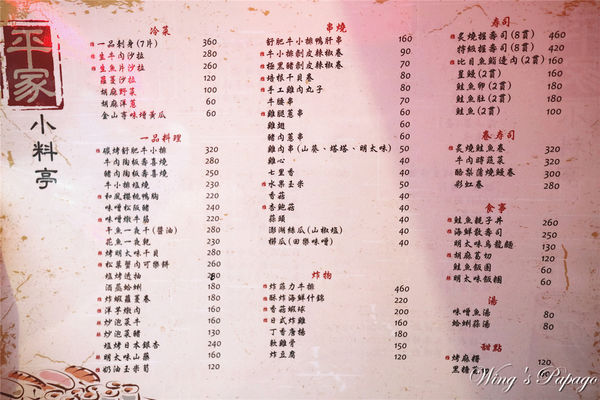 平家
小料亭
冷菜
一品刺身(7片) 360
生牛肉沙拉 280
生魚片沙拉 260
蘿蔓沙拉 120
胡麻野菜 100
胡麻洋蔥 60
金山寺味噌黃瓜 60
一品料理
碳烤舒肥牛小排 320
牛肉陶板壽喜燒 280
豬肉陶板壽喜燒 250
牛小排塩燒 230
和風櫻桃鴨胸 220
味噌松阪豬 240
味噌嫩牛筋 220
干魚一夜干(醬油) 280
花魚一夜乾 230
烤明太味干貝 280
松葉蟹肉可樂餅 260
塩烤透抽 280
酒蒸蛤蜊 180
炸蝦蘿蔓卷 180
洋芋燉肉 160
炒泡菜牛 160
炒泡菜豬 130
塩烤日本銀杏 240
明太味山藥 160
奶油玉米筍 120
串燒
舒肥牛小排鴨肝串 160
牛小排剝皮辣椒卷 90
極黑豬剝皮辣椒卷 70
培根干貝卷 80
手工雞肉丸子 80
牛腰串 70
雞腿蔥串 60
雞翅 60
豬肉蔥串 50
雞肉串(山葵、塔塔、明太味) 50
雞心 40
七里香 40
水果玉米 50
香菇 40
杏鮑菇 40
蒜頭 40
澎湖絲瓜(山椒塩) 40
櫛瓜(田樂味噌) 40
炸物
炸菲力牛排 460
酥炸海鮮什錦 220
香菇蝦球 200
日式炸雞 160
丁香唐揚 180
軟雞骨 150
炸豆腐 120
壽司
炙燒握壽司(8貫) 460
特級握壽司(8貫) 420
比目魚鰭邊肉(2貫) 160
星鰻(2貫) 160
鮭魚卵(2貫) 180
鮭魚肚(2貫) 120
鮭魚(2貫) 100
卷壽司
炙燒鮭魚卷 320
牛肉時蔬菜 320
酪梨蒲燒鰻卷 300
彩虹卷 280
食事
鮭魚親子丼 260
海鮮散壽司 250
明太味烏龍麵 130
胡麻葛切 120
鮭魚飯糰 60
明太味飯糰 60
湯
味噌魚湯 80
蛤蜊蒜湯 80
甜點
烤麻糬 120
Wing's Papago